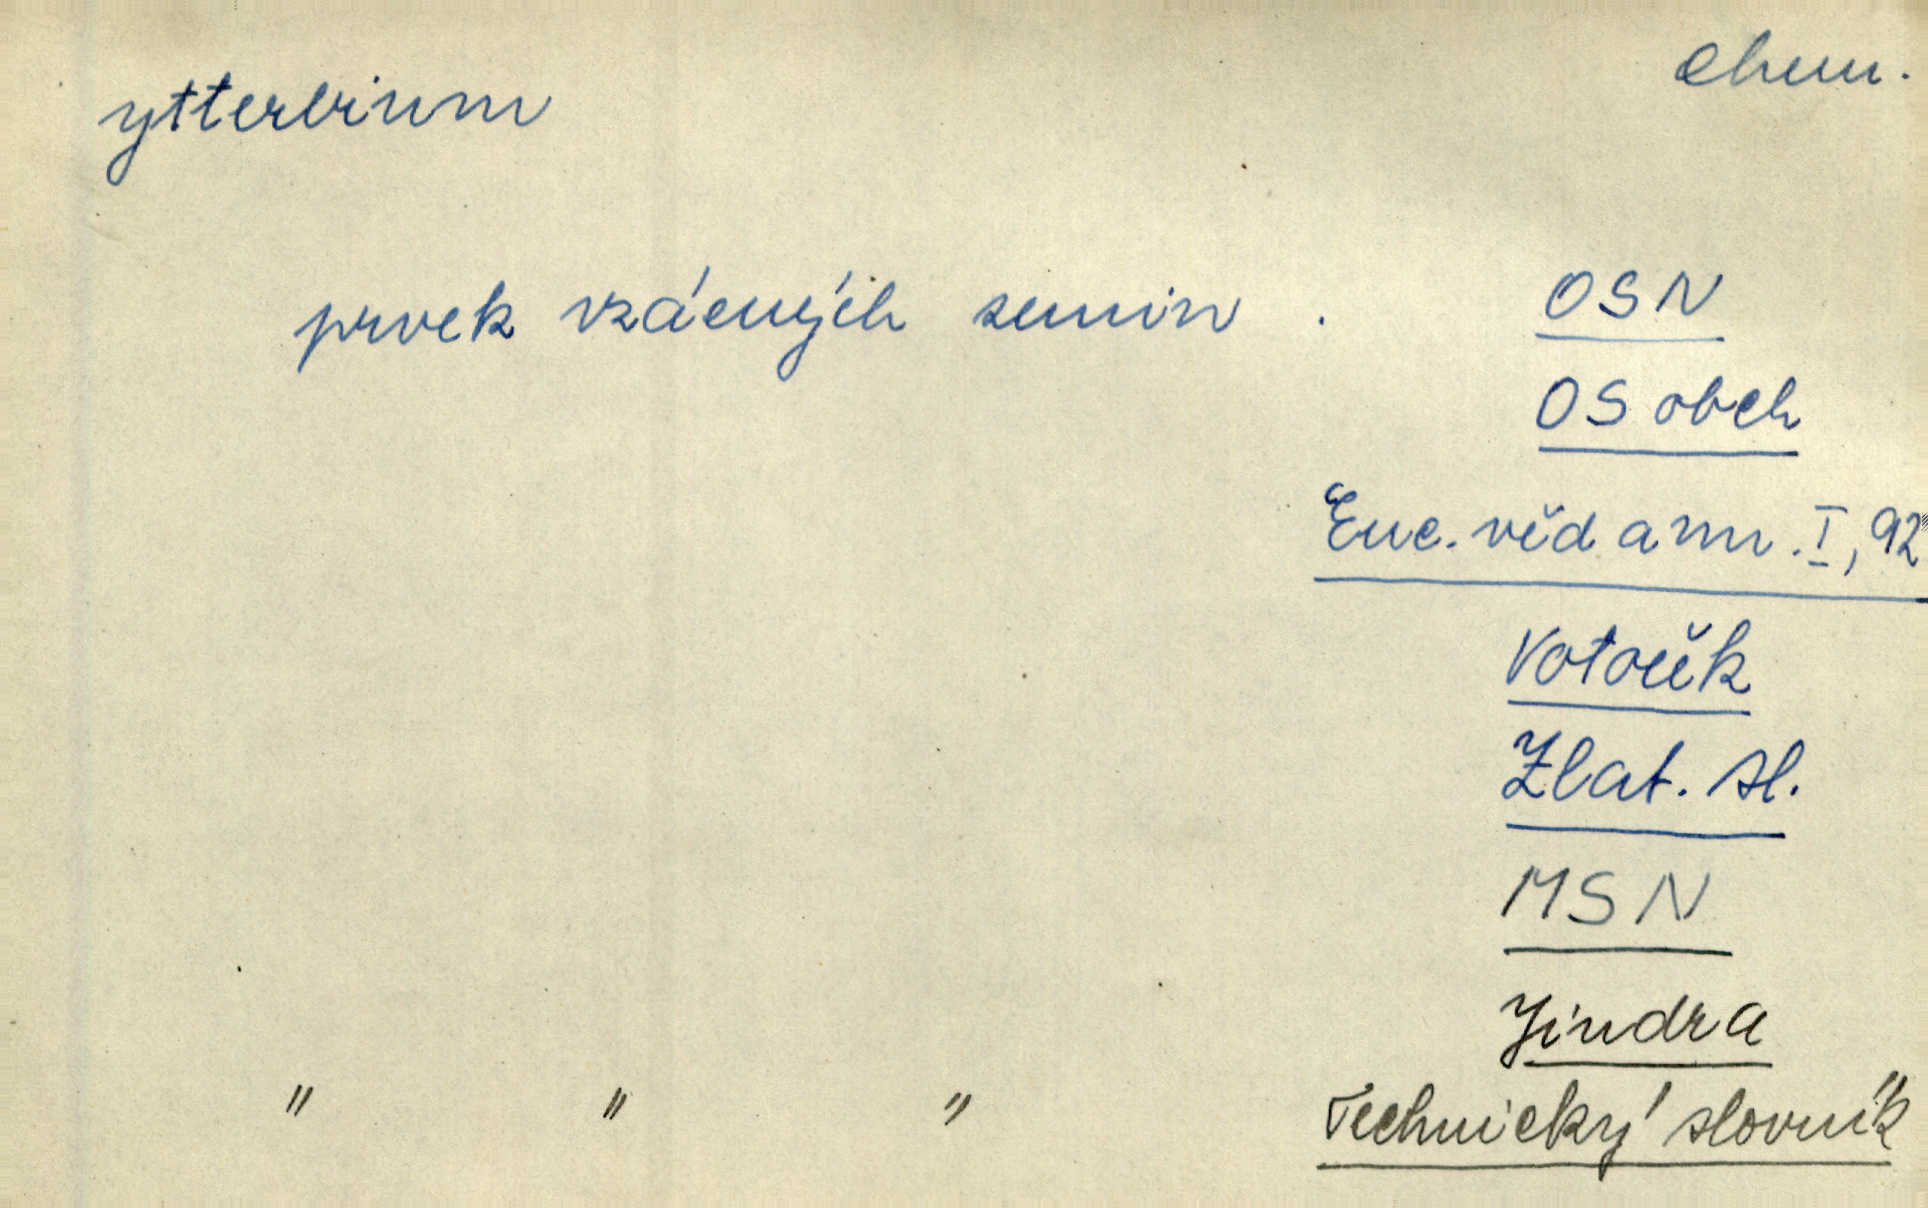 chem.
ytterbium
prvek vzácných zemin . OSN
OS obch
Enc. věd a um. I, 92
Votoček
Zlat. sl.
MSN
Jindra
" " " Technický slovník